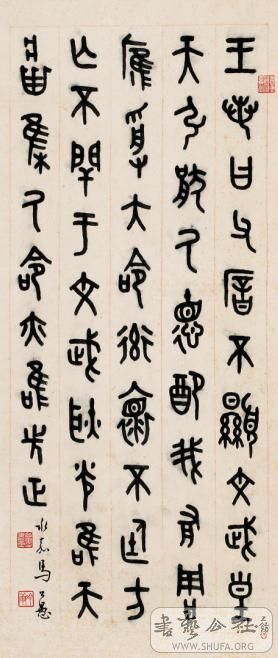 王若曰父厝不顯文武皇
天引猒厥德配我有周
雁受大命衒褱不廷方
亡不閈于文武耿光唯天
將集厥命亦唯先正
永嘉馬公愚
書藝公社
WWW.SHUFA.ORG